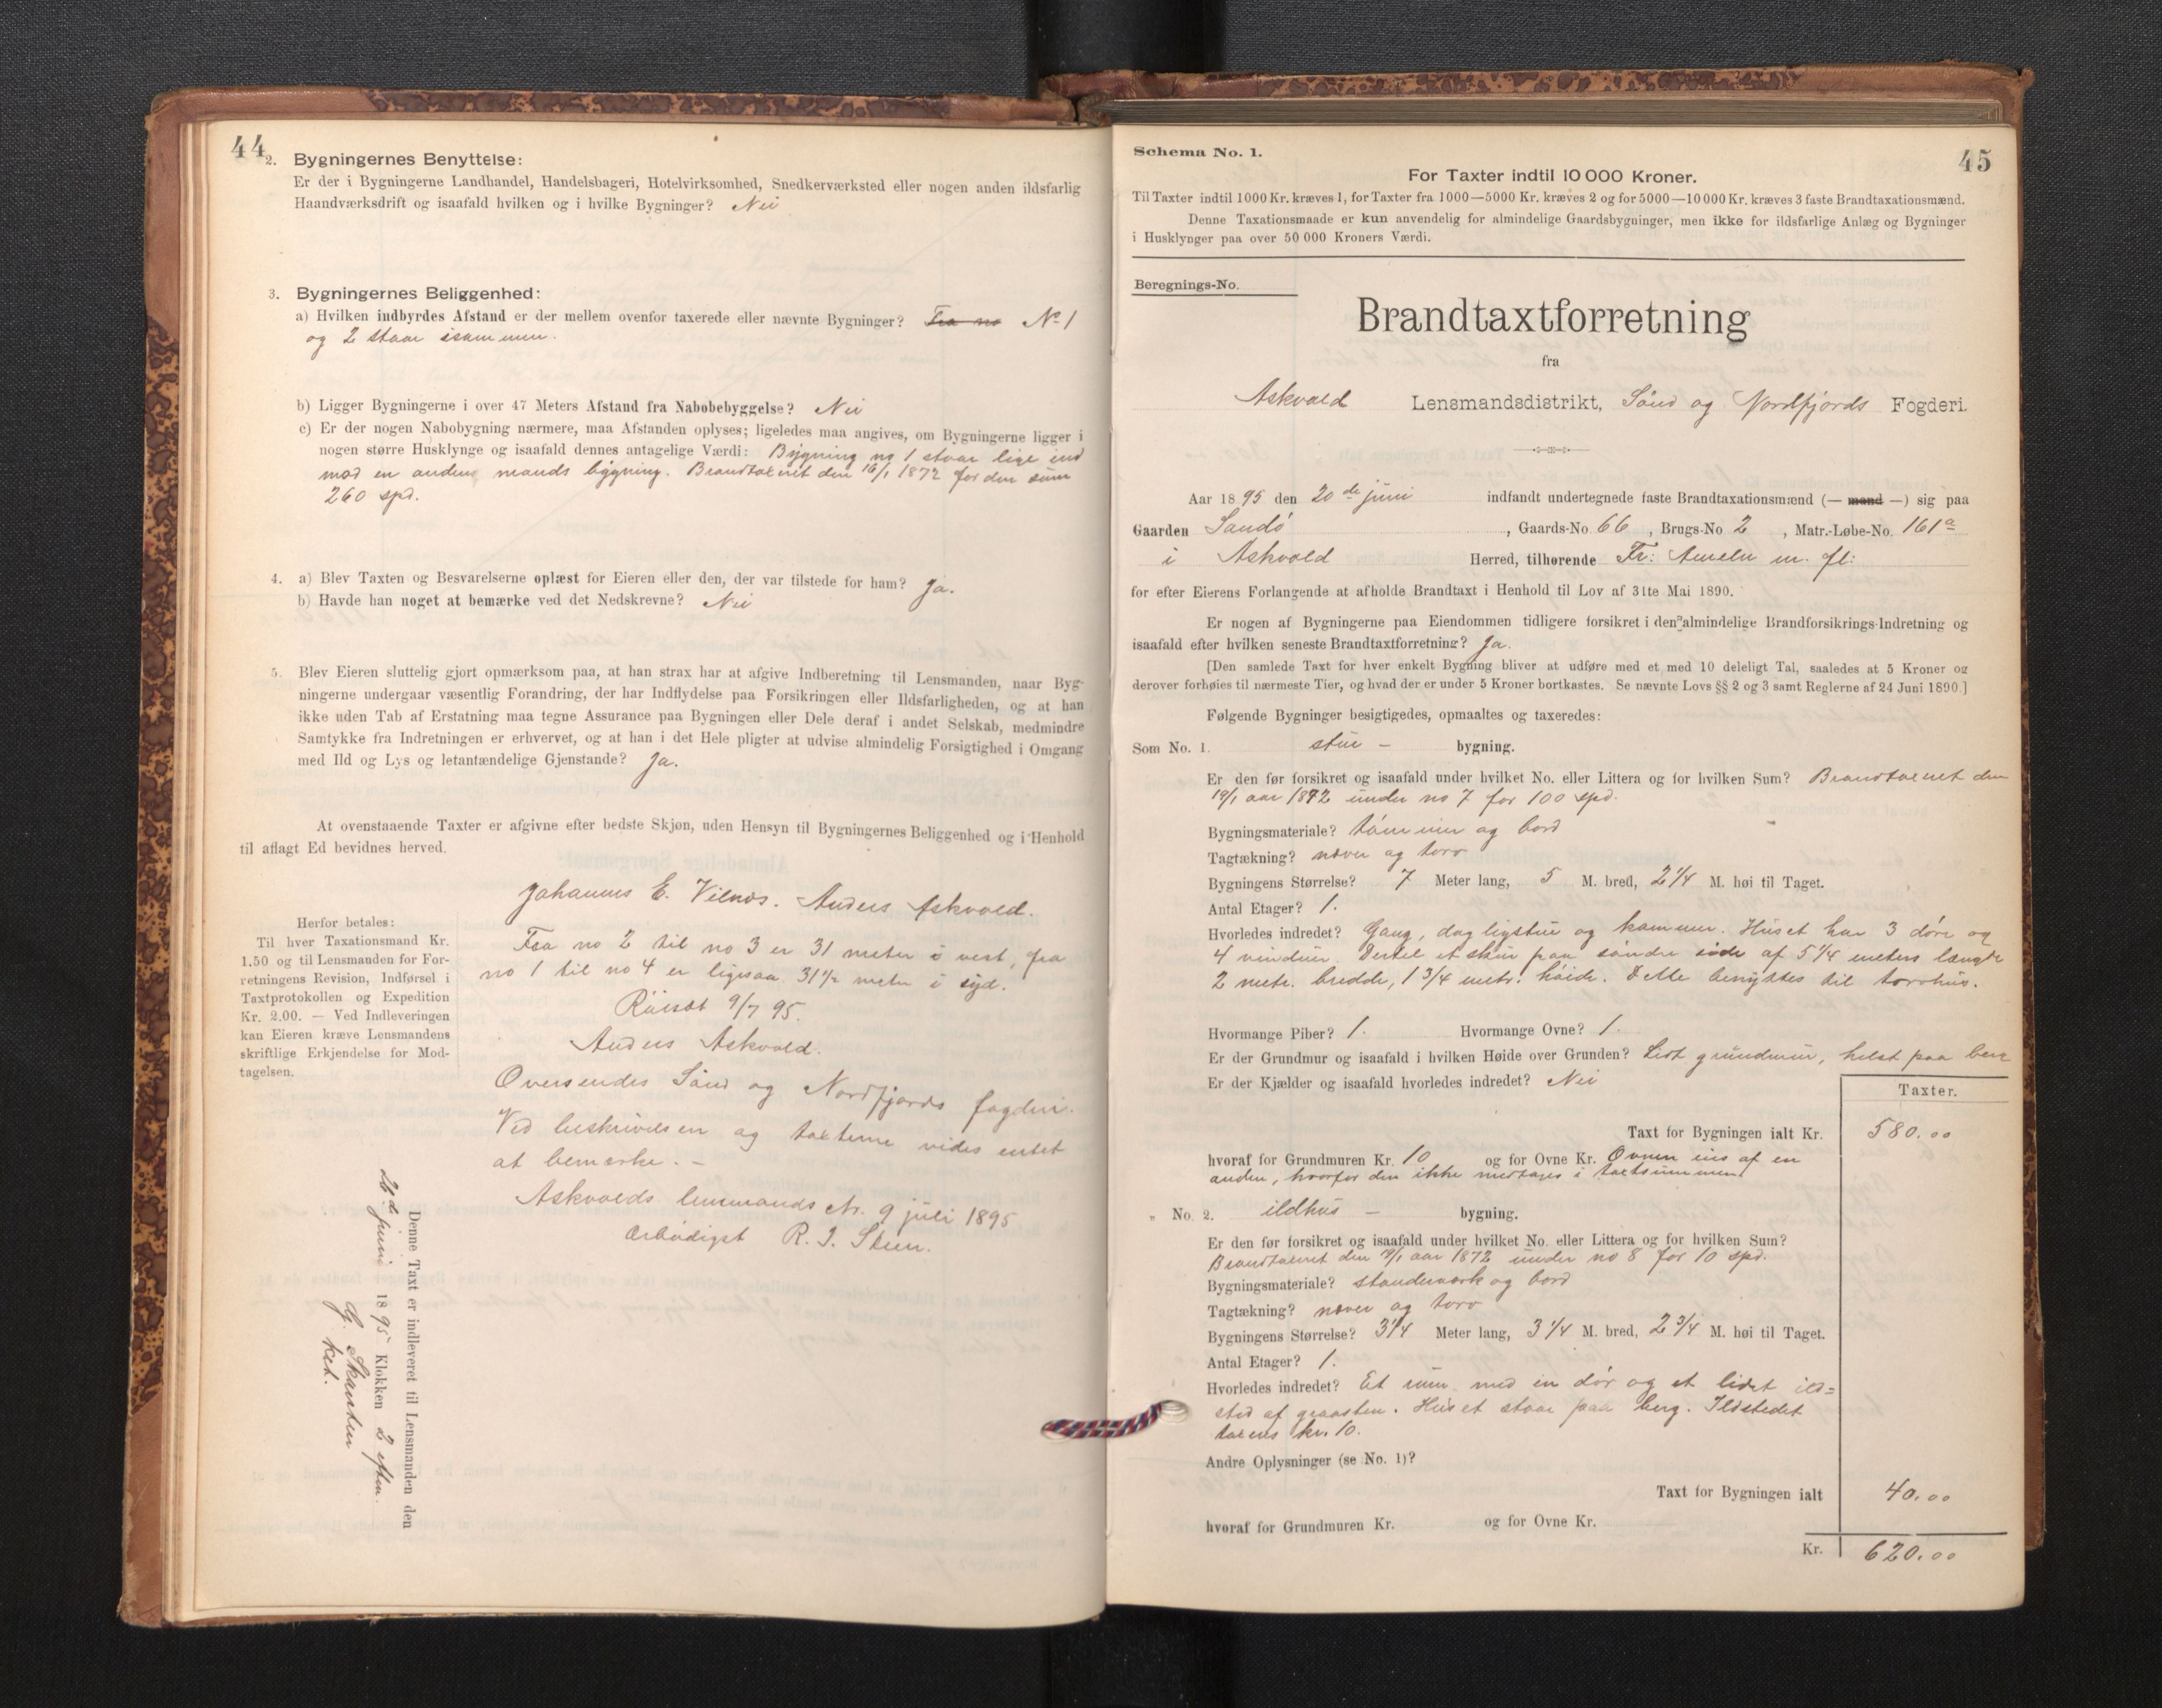 44
2. Bygningernes Benyttelse:
Er der i Bygningerne Landhandel, Handelsbageri, Hotelvirksomhed, Snedkerværksted eller nogen anden ildsfarlig
Haandværksdrift og isaafald hvilken og i hvilke Bygninger? Nei
3. Bygningernes Beliggenhed:
a) Hvilken indbyrdes Afstand er der mellem ovenfor taxerede eller nævnte Bygninger? Fra no No 1
og 2 staar isammen.
b) Ligger Bygningerne i over 47 Meters Afstand fra Nabobebyggelse? Nei
c) Er der nogen Nabobygning nærmere, maa Afstanden oplyses; ligeledes maa angives, om Bygningerne ligger i
nogen større Husklynge og isaafald dennes antagelige Værdi: Bygning no 1 staar lige ind
mod en anden mands bygning. Brandtaxeret den 16/1 1872 for den sum
260 spd.
4. a) Blev Taxten og Besvarelserne oplæst for Eieren eller den, der var tilstede for ham? Ja.
b) Havde han noget at bemærke ved det Nedskrevne? Nei
5. Blev Eieren sluttelig gjort opmærksom paa, at han strax har at afgive Indberetning til Lensmanden, naar Byg-
ningerne undergaar væsentlig Forandring, der har Indflydelse paa Forsikringen eller Ildsfarligheden, og at han
ikke uden Tab af Erstatning maa tegne Assurance paa Bygningen eller Dele deraf i andet Selskab, medmindre
Samtykke fra Indretningen er erhvervet, og at han i det Hele pligter at udvise almindelig Forsigtighed i Omgang
med Ild og Lys og letantændelige Gjenstande? Ja.
At ovenstaaende Taxter er afgivne efter bedste Skjøn, uden Hensyn til Bygningernes Beliggenhed og i Henhold
til aflagt Ed bevidnes herved.
Johannes E. Vilnæs. Anders Askvold.
Fra no 2 til no 3 er 31 meter i vest, fra
no 1 til no 4 er ligesaa 31 1/2 meter i syd.
9/7 95.
Anders Askvold.
Oversendes Sønd og Nordfjords fogderi.
Ved beskrivelsen og taxterne vides entet
at bemærke. –
Askvolds lensmandsktr. 9 juli 1895
ærbødigst R. J. Steen.
Herfor betales:
Til hver Taxationsmand Kr.
1.50 og til Lensmanden for For-
retningens Revision, Indførsel i
Taxtprotokollen og Expedition
Kr. 2.00. — Ved Indleveringen
kan Eieren kræve Lensmandens
skriftlige Erkjendelse for Mod-
tagelsen.
Denne Taxt er indleveret til Lensmanden den
26de juni 1895 Klokken 2 efterm.
45
Schema No. 1.
For Taxter indtil 10 000 Kroner.
Til Taxter indtil 1000 Kr. kræves 1, for Taxter fra 1000—5000 Kr. kræves 2 og for 5000—10 000 Kr. kræves 3 faste Brandtaxationsmænd.
Denne Taxationsmaade er kun anvendelig for almindelige Gaardsbygninger, men ikke for ildsfarlige Anlæg og Bygninger
i Husklynger paa over 50 000 Kroners Værdi.
Beregnings-No.
Brandtaxtforretning
fra
Askvold Lensmandsdistrikt, Sønd og Nordfjords Fogderi.
Aar 1895 den 20de juni indfandt undertegnede faste Brandtaxationsmænd (— mand —) sig paa
Gaarden Sandø, Gaards-No. 66, Brugs-No 2, Matr.-Løbe-No. 161a
i Askvold Herred, tilhørende Fr: Ameln m. fl:
for efter Eierens Forlangende at afholde Brandtaxt i Henhold til Lov af 31te Mai 1890.
Er nogen af Bygningerne paa Eiendommen tidligere forsikret i den almindelige Brandforsikrings-Indretning og
isaafald efter hvilken seneste Brandtaxtforretning? Ja.
[Den samlede Taxt for hver enkelt Bygning bliver at udføre med et med 10 deleligt Tal, saaledes at 5 Kroner og
derover forhøies til nærmeste Tier, og hvad der er under 5 Kroner bortkastes. Se nævnte Lovs §§ 2 og 3 samt Reglerne af 24 Juni 1890.]
Følgende Bygninger besigtigedes, opmaaltes og taxeredes:
Som No. 1. stue – bygning.
Er den før forsikret og isaafald under hvilket No. eller Littera og for hvilken Sum? Brandtaxeret den
19/1 aar 1872 under no 7 for 100 spd.
Bygningsmateriale? tømmer og bord
Tagtækning? næver og torv
Bygningens Størrelse? 7 Meter lang, 5 M. bred, 2 1/4 M. høi til Taget.
Antal Etager? 1.
Hvorledes indredet? Gang, dagligstue og kammer. Huset har 3 døre og
4 vinduer. Dertil et skur paa søndre side af 5 1/4 meters længde
2 metr. bredde, 1 3/4 metr. høide. Dette benyttes til torvhus.
Hvormange Piber? 1. Hvormange Ovne? 1.
Er der Grundmur og isaafald i hvilken Høide over Grunden? Lidt grundmur, helst paa berg
Er der Kjælder og isaafald hvorledes indredet? Nei
Taxter.
Taxt for Bygningen ialt Kr. 580.00
hvoraf for Grundmuren Kr. 10 og for Ovne Kr. Ovnen eies af en
anden, hvorfor den ikke medtages i taxtsummen.
„ No. 2. ildhus – bygning.
Er den før forsikret og isaafald under hvilket No. eller Littera og for hvilken Sum?
Brandtaxeret den 19/1 aar 1872 under no 8 for 10 spd.
Bygningsmateriale? standerværk og bord
Tagtækning? næver og torv
Bygningens Størrelse? 3 1/4 Meter lang, 3 1/4 M. bred, 2 3/4 M. høi til Taget.
Antal Etager? 1.
Hvorledes indredet? Et rum med en dør og et lidet ild=
sted af graasten. Huset staar paa berg. Ildstedet
taxeres kr. 10.
Andre Oplysninger (se No. 1)?
Taxt for Bygningen ialt 40.00
hvoraf for Grundmuren Kr. og for Ovne Kr.
Kr. 620.00